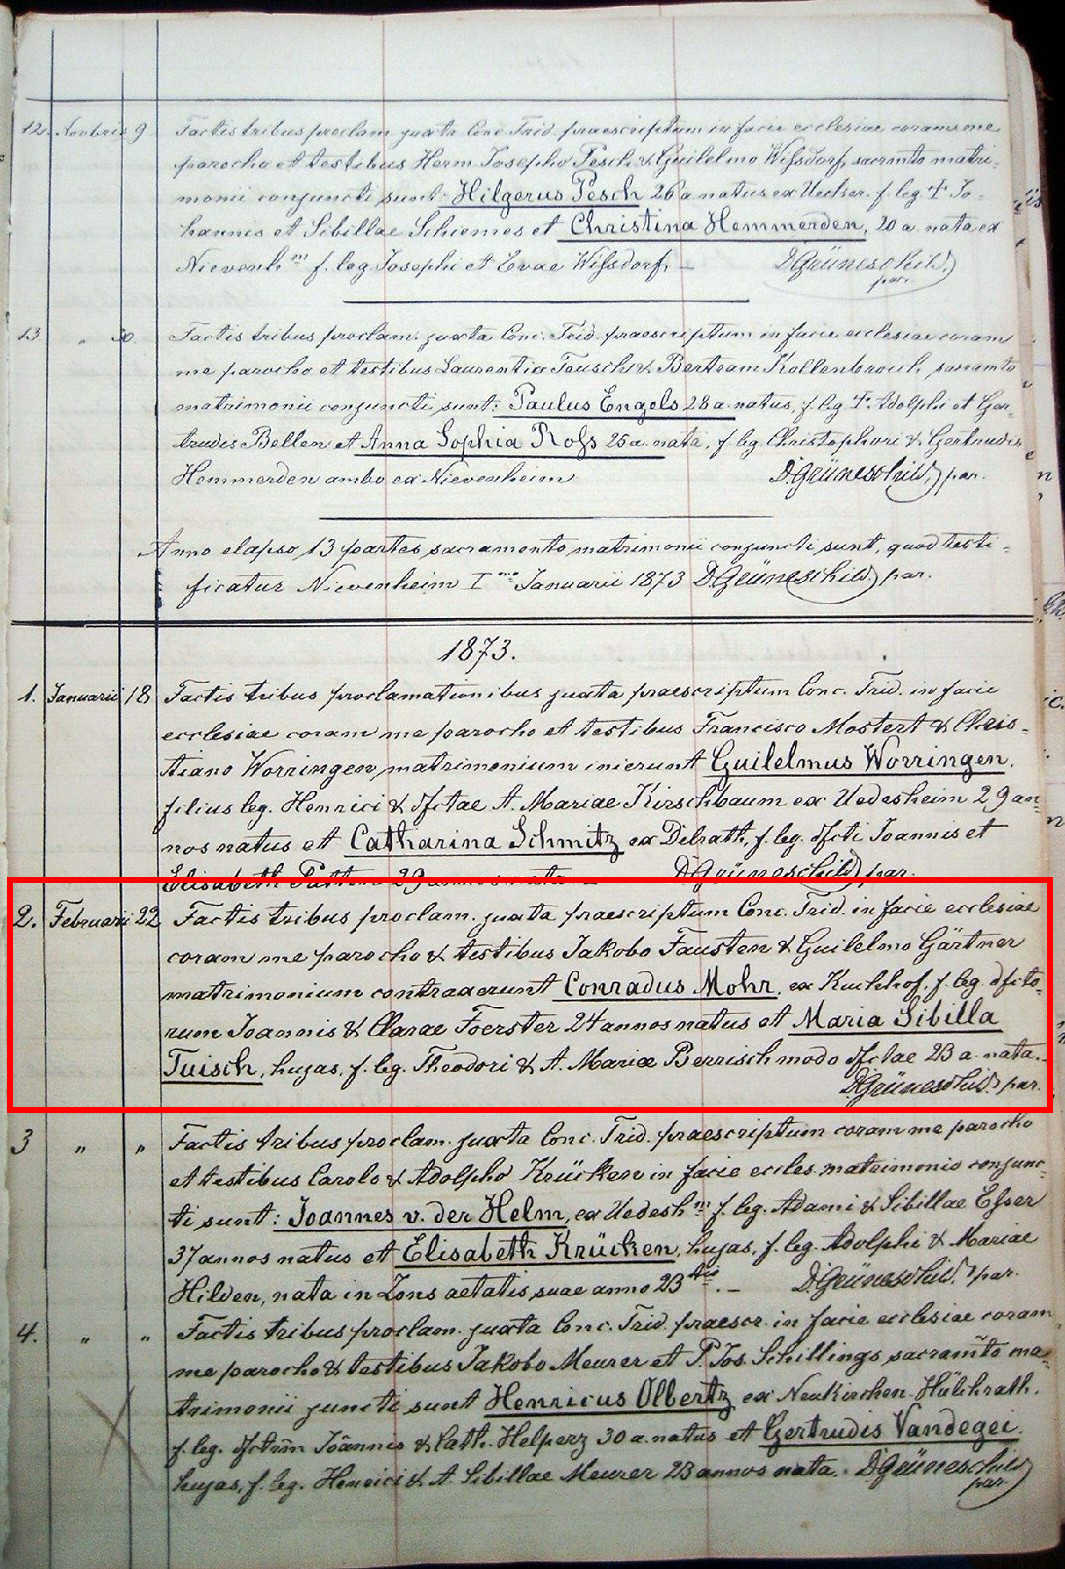 12. Novbris 9. Factis tribus proclam. juxta Conc. Trid. praescriptum in facie ecclesiae coram me
parocho et testibus Herm. Josepho Pesch & Guilelmo Wissdorf, sacramto matri-
monii conjuncti sunt: Hilgerus Pesch 26 a. natus ex Ueckr. f. leg. † Jo-
hannis et Sibillae Schiemes et Christina Hemmerden, 20 a. nata ex
Nievenhm f. leg. Josephi et Evae Wissdorf, — D. Grüneschild,
par.
13 " 30. Factis tribus proclam. juxta Conc. Trid. praescriptum in facie ecclesiae coram
me parocho et testibus Laurentio Tousch & Bertram Kallenbroich, sacramto
matrimonii conjuncti sunt: Paulus Engels 28 a. natus, f. leg. † Adolphi et Ger-
trudis Bellen et Anna Sophia Rofs 25 a. nata, f. leg. Christophori & Gertrudis
Hemmerden ambo ex Nievenheim D. Grüneschild, par.
Anno elapso 13 partes sacramento matrimonii conjuncti sunt, quod testi-
ficatur Nievenheim Imo Januarii 1873 D. Grüneschild, par.
1873.
1. Januarii 18 Factis tribus proclamationibus juxta praescriptum Conc. Trid. in facie
ecclesiae coram me parocho et testibus Francisco Mostert & Chris-
tiano Worringen, matrimonium inierunt Guilelmus Worringen,
filius leg. Henrici & dfctae A. Mariae Kirschbaum ex Uedesheim 29 an-
nos natus et Catharina Schmitz ex Delrath, f. leg. dfcti Joannis et
Elisabeth 29 annos nata — D. Grüneschild, par.
2. Februarii 22 Factis tribus proclam. juxta praescriptum Conc. Trid. in facie ecclesiae
coram me parocho & testibus Jakobo Fausten & Guilelmo Gärtner
matrimonium contraxerunt Conradus Mohr, ex Kuckhof, f. leg. dfcto-
rum Joannis & Clarae Foerster 24 annos natus et Maria Sibilla
Tuisch, hujas, f. leg. Theodori & A. Mariae Berrisch modo dfctae 23 a. nata.
D. Grüneschild, par.
3 " " Factis tribus proclam. juxta Conc. Trid. praescriptum coram me parocho
et testibus Carolo & Adolpho Krücken in facie eccles. matrimonio conjunc-
ti sunt: Joannes v. der Helm, ex Uedeshm f. leg. Adami & Sibillae Esser
37 annos natus et Elisabeth Krücken, hujas, f. leg. Adolphi & Mariae
Hilden, nata in Zons aetatis suae anno 23tio. — D. Grüneschild, par.
4. " " Factis tribus proclam. juxta Conc. Trid. praescr. in facie ecclesiae coram
me parocho & testibus Jakobo Meurer et P. Jos. Schillings sacram̃to ma-
trimonii juncti sunt Henricus Olbertz ex Neukirchen-Hülchrath,
f. leg. dfctrum Joannis & Cath. Helperz 30 a. natus et Gertrudis Vandegei,
hujas, f. leg. Henrici & A. Sibillae Meurer 23 annos nata. D. Grüneschild
par.